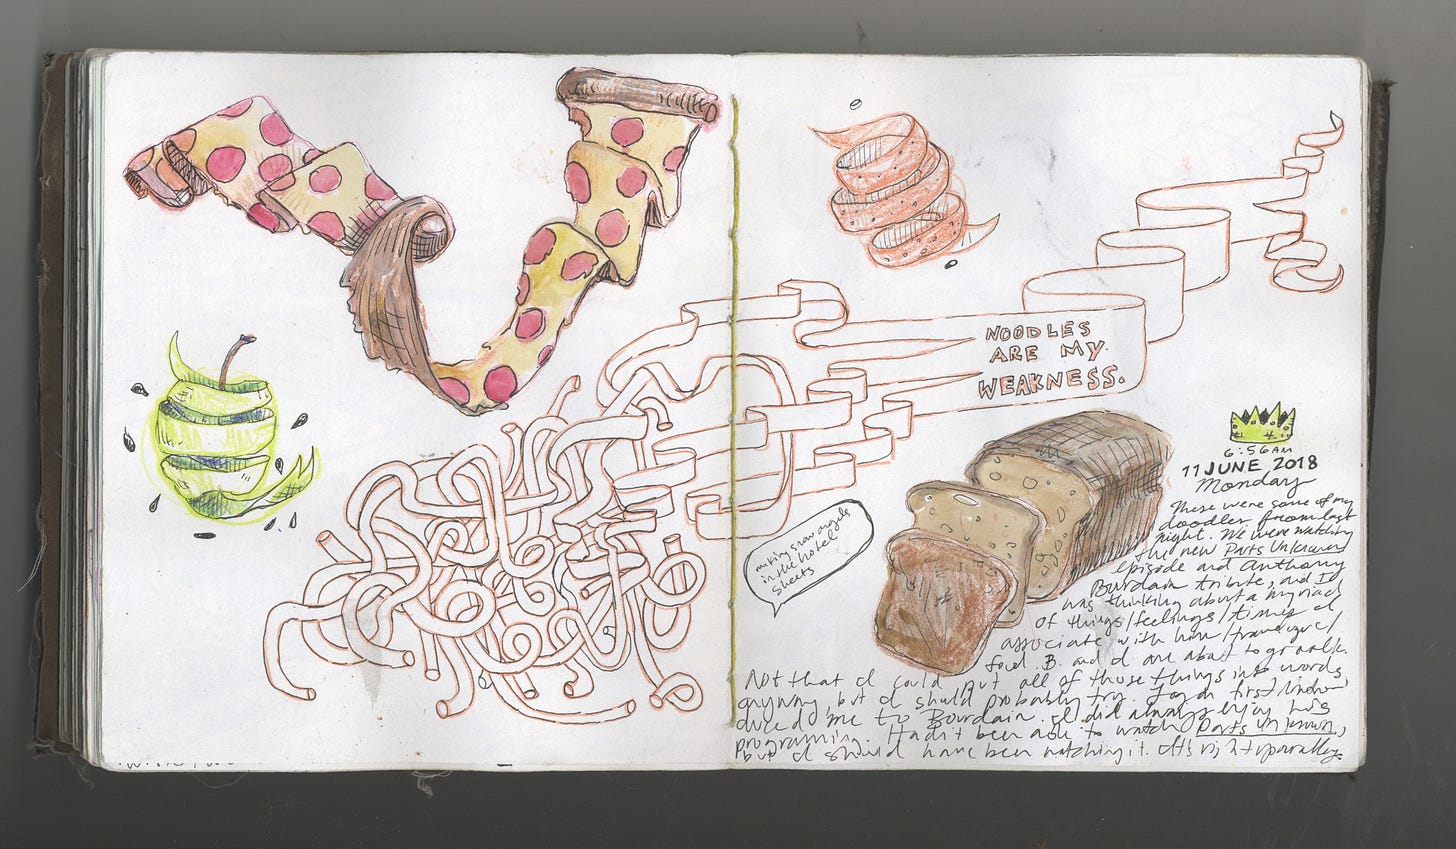 NOODLES
ARE MY
WEAKNESS.
making snow angels
in the hotel
sheets
6:56AM
11 JUNE, 2018
Monday
These were some of my
doodles from last
night. We were watching
the new Parts Unknown
episode and Anthony
Bourdain tribute, and I
was thinking about a myriad
of things/feelings/times I
associate with him/travel/
food. B. and I are about to go walk.
Not that I could put all of those things into words
anyway, but I should probably try. first
me to Bourdain. I did always enjoy his
programming. Hadn't been able to watch Parts Unknown,
but I should have been watching it. It's right up our alley.